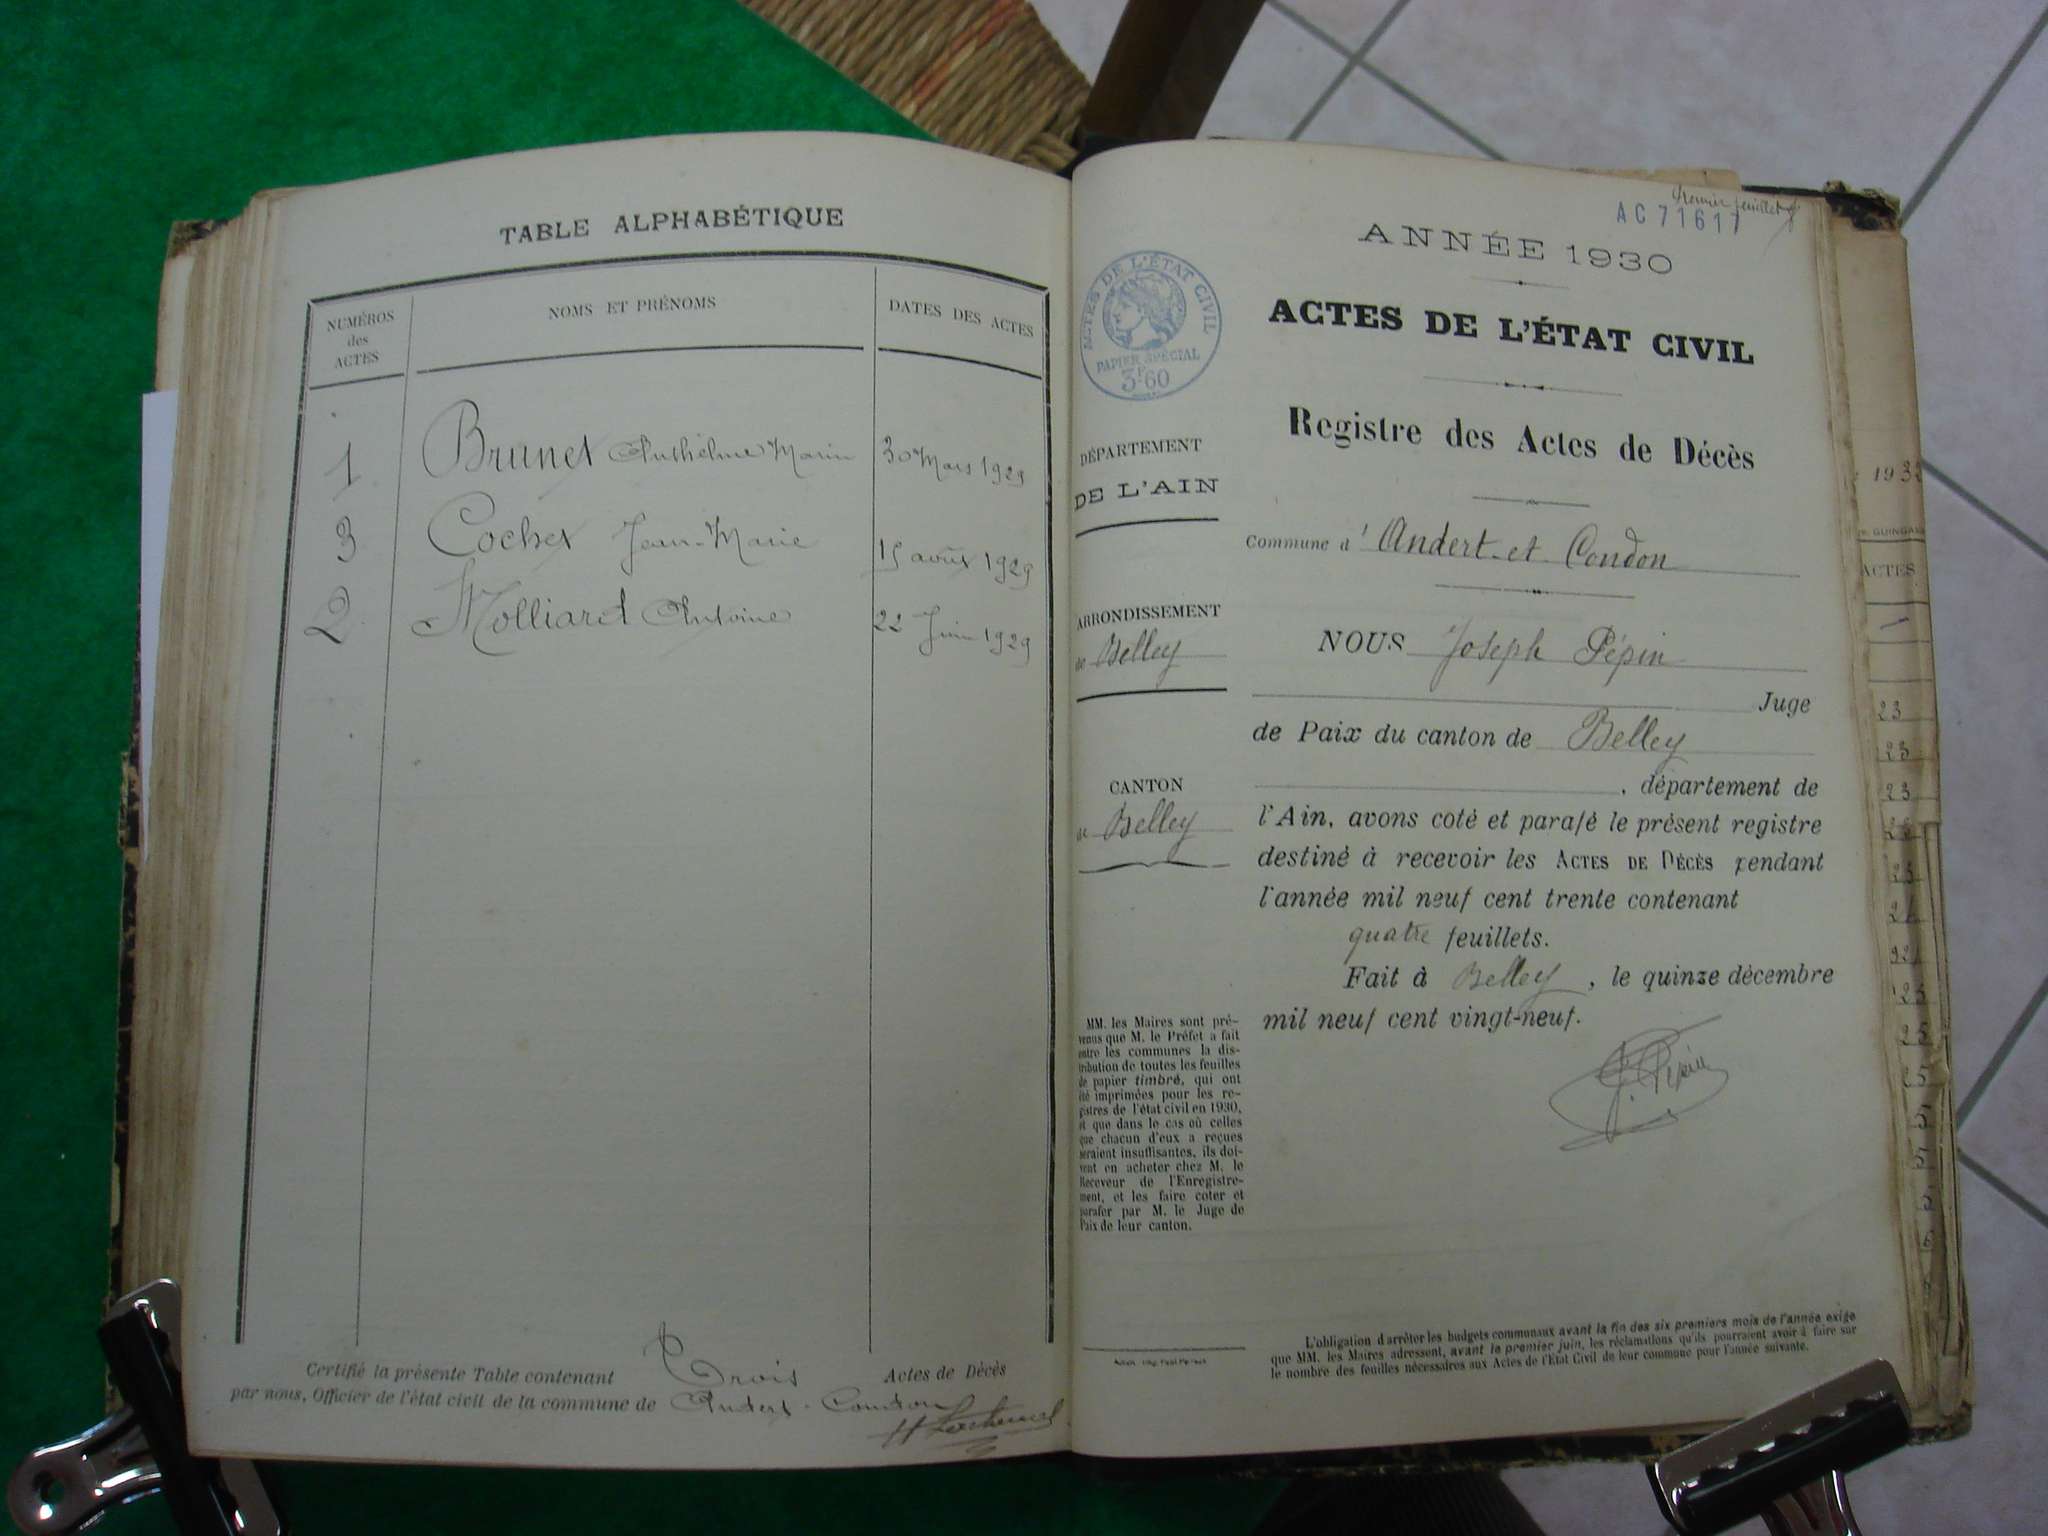 TABLE ALPHABÉTIQUE
NUMÉROS
des
ACTES
NOMS ET PRÉNOMS
DATES DES ACTES
1 Brunet Anthelme Marin 30 Mars 1929
3 Cochet Jean-Marie 15 août 1929
2 Molliard Antoine 22 Juin 1929
Certifié la présente Table contenant Trois Actes de Décès
par nous, Officier de l'état civil de la commune de Andert-Condon
Premier feuillet
AC 71617
ANNÉE 1930
ACTES DE L'ÉTAT CIVIL
PAPIER SPÉCIAL
3F60
ACTES DE L'ÉTAT CIVIL
Registre des Actes de Décès
DÉPARTEMENT
DE L'AIN
Commune d'Andert-et-Condon
ARRONDISSEMENT
de Belley
NOUS Joseph Pépin
Juge
de Paix du canton de Belley
CANTON
de Belley
, département de
l'Ain, avons coté et parafé le présent registre
destiné à recevoir les ACTES DE DÉCÈS pendant
l'année mil neuf cent trente contenant
quatre feuillets.
Fait à Belley, le quinze décembre
mil neuf cent vingt-neuf.
J. Pépin
MM. les Maires sont pré-
venus que M. le Préfet a fait
entre les communes la dis-
tribution de toutes les feuilles
de papier timbré, qui ont
été imprimées pour les re-
gistres de l'état civil en 1930,
et que dans le cas où celles
que chacun d'eux a reçues
seraient insuffisantes, ils doi-
vent en acheter chez M. le
Receveur de l'Enregistre-
ment, et les faire coter et
parafer par M. le Juge de
Paix de leur canton.
L'obligation d'arrêter les budgets communaux avant la fin des six premiers mois de l'année exige
que MM. les Maires adressent, avant le premier juin, les réclamations qu'ils pourraient avoir à faire sur
le nombre des feuilles nécessaires aux Actes de l'Etat Civil de leur commune pour l'année suivante.
ACTES
23
23
23